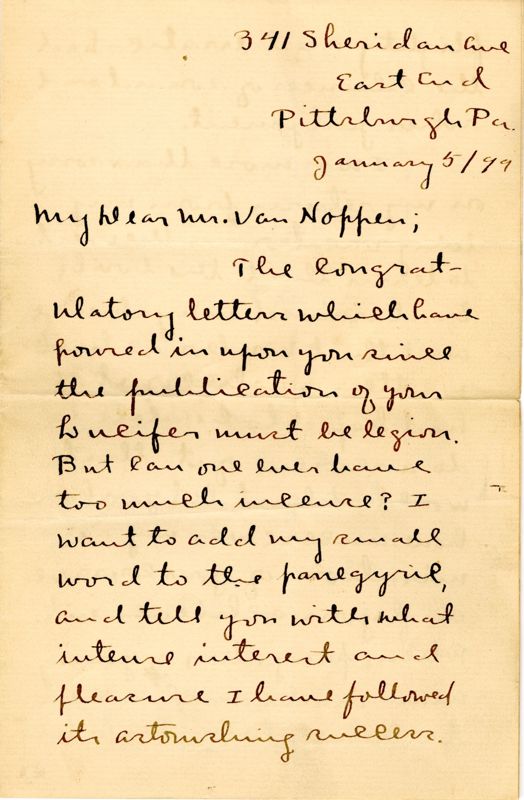 341 Sheridan Ave
East End
Pittsburgh Pa.
January 5/99
My Dear Mr. Van Noppen;
The congrat-
ulatory letters which have
poured in upon you since
the publication of your
Lucifer must be legion.
But can one ever have
too much incense? I
want to add my small
word to the panegyric,
and tell you with what
intense interest and
pleasure I have followed
its astonishing success.